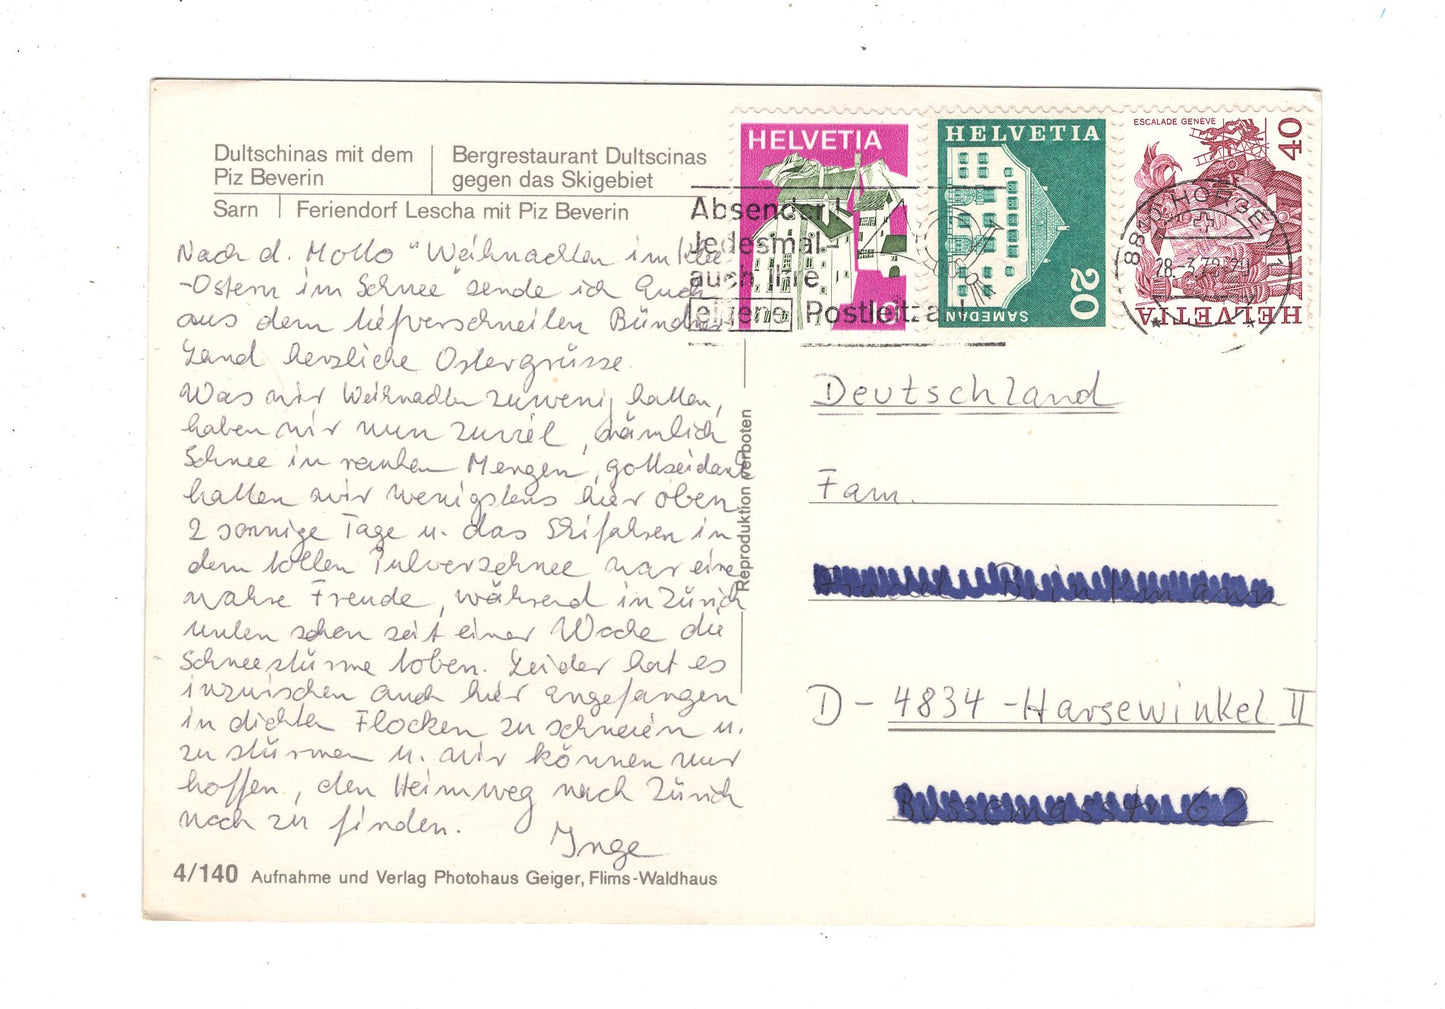 Dultschinas mit dem
Piz Beverin
Bergrestaurant Dultscinas
gegen das Skigebiet
Sarn
Feriendorf Lescha mit Piz Beverin
Nach d. Motto "Weihnachten im
-Ostern im Schnee" sende ich Euch
aus dem tiefverschneiten Bündner
Land herzliche Ostergrüsse.
Was wir Weihnachten zuwenig hatten,
haben wir nun zuviel, nämlich
Schnee in rauhen Mengen, gottseidank
hatten wir wenigstens hier oben
2 sonnige Tage u. das Skifahren in
dem tollen Pulverschnee war eine
wahre Freude, während in Zürich
unten schon seit einer Woche die
Schneestürme toben. Leider hat es
inzwischen auch hier angefangen
in dichten Flocken zu schneien u.
zu stürmen u. wir können nur
hoffen, den Heimweg nach Zürich
noch zu finden.
Inge
4/140 Aufnahme und Verlag Photohaus Geiger, Flims-Waldhaus
Reproduktion verboten
HELVETIA
HELVETIA
20
SAMEDAN
ESCALADE GENÈVE
40
HELVETIA
Absender!
Jedesmal
auch Ihre
eigene Postleitzahl
8810 HORGEN 1
28.-3.79
Deutschland
Fam.
D-4834-Harsewinkel II